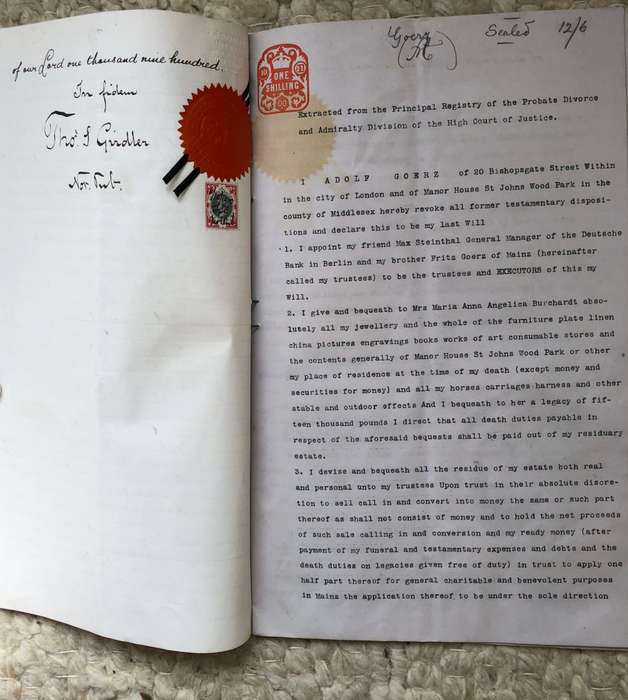 of our Lord one thousand nine hundred.
In fidem
Thos. S Gridler
Not. Pub.
Goerz
Sealed 12/6
ONE
SHILLING
Extracted from the Principal Registry of the Probate Divorce
and Admiralty Division of the High Court of Justice.
I ADOLF GOERZ of 20 Bishopsgate Street Within
in the city of London and of Manor House St Johns Wood Park in the
county of Middlesex hereby revoke all former testamentary disposi-
tions and declare this to be my last Will
1. I appoint my friend Max Steinthal General Manager of the Deutsche
Bank in Berlin and my brother Fritz Goerz of Mainz (hereinafter
called my trustees) to be the trustees and EXECUTORS of this my
Will.
2. I give and bequeath to Mrs Maria Anna Angelica Burchardt abso-
lutely all my jewellery and the whole of the furniture plate linen
china pictures engravings books works of art consumable stores and
the contents generally of Manor House St Johns Wood Park or other
my place of residence at the time of my death (except money and
securities for money) and all my horses carriages harness and other
stable and outdoor effects And I bequeath to her a legacy of fif-
teen thousand pounds I direct that all death duties payable in
respect of the aforesaid bequests shall be paid out of my residuary
estate.
3. I devise and bequeath all the residue of my estate both real
and personal unto my trustees Upon trust in their absolute discre-
tion to sell call in and convert into money the same or such part
thereof as shall not consist of money and to hold the net proceeds
of such sale calling in and conversion and my ready money (after
payment of my funeral and testamentary expenses and debts and the
death duties on legacies given free of duty) in trust to apply one
half part thereof for general charitable and benevolent purposes
in Mainz the application thereof to be under the sole direction